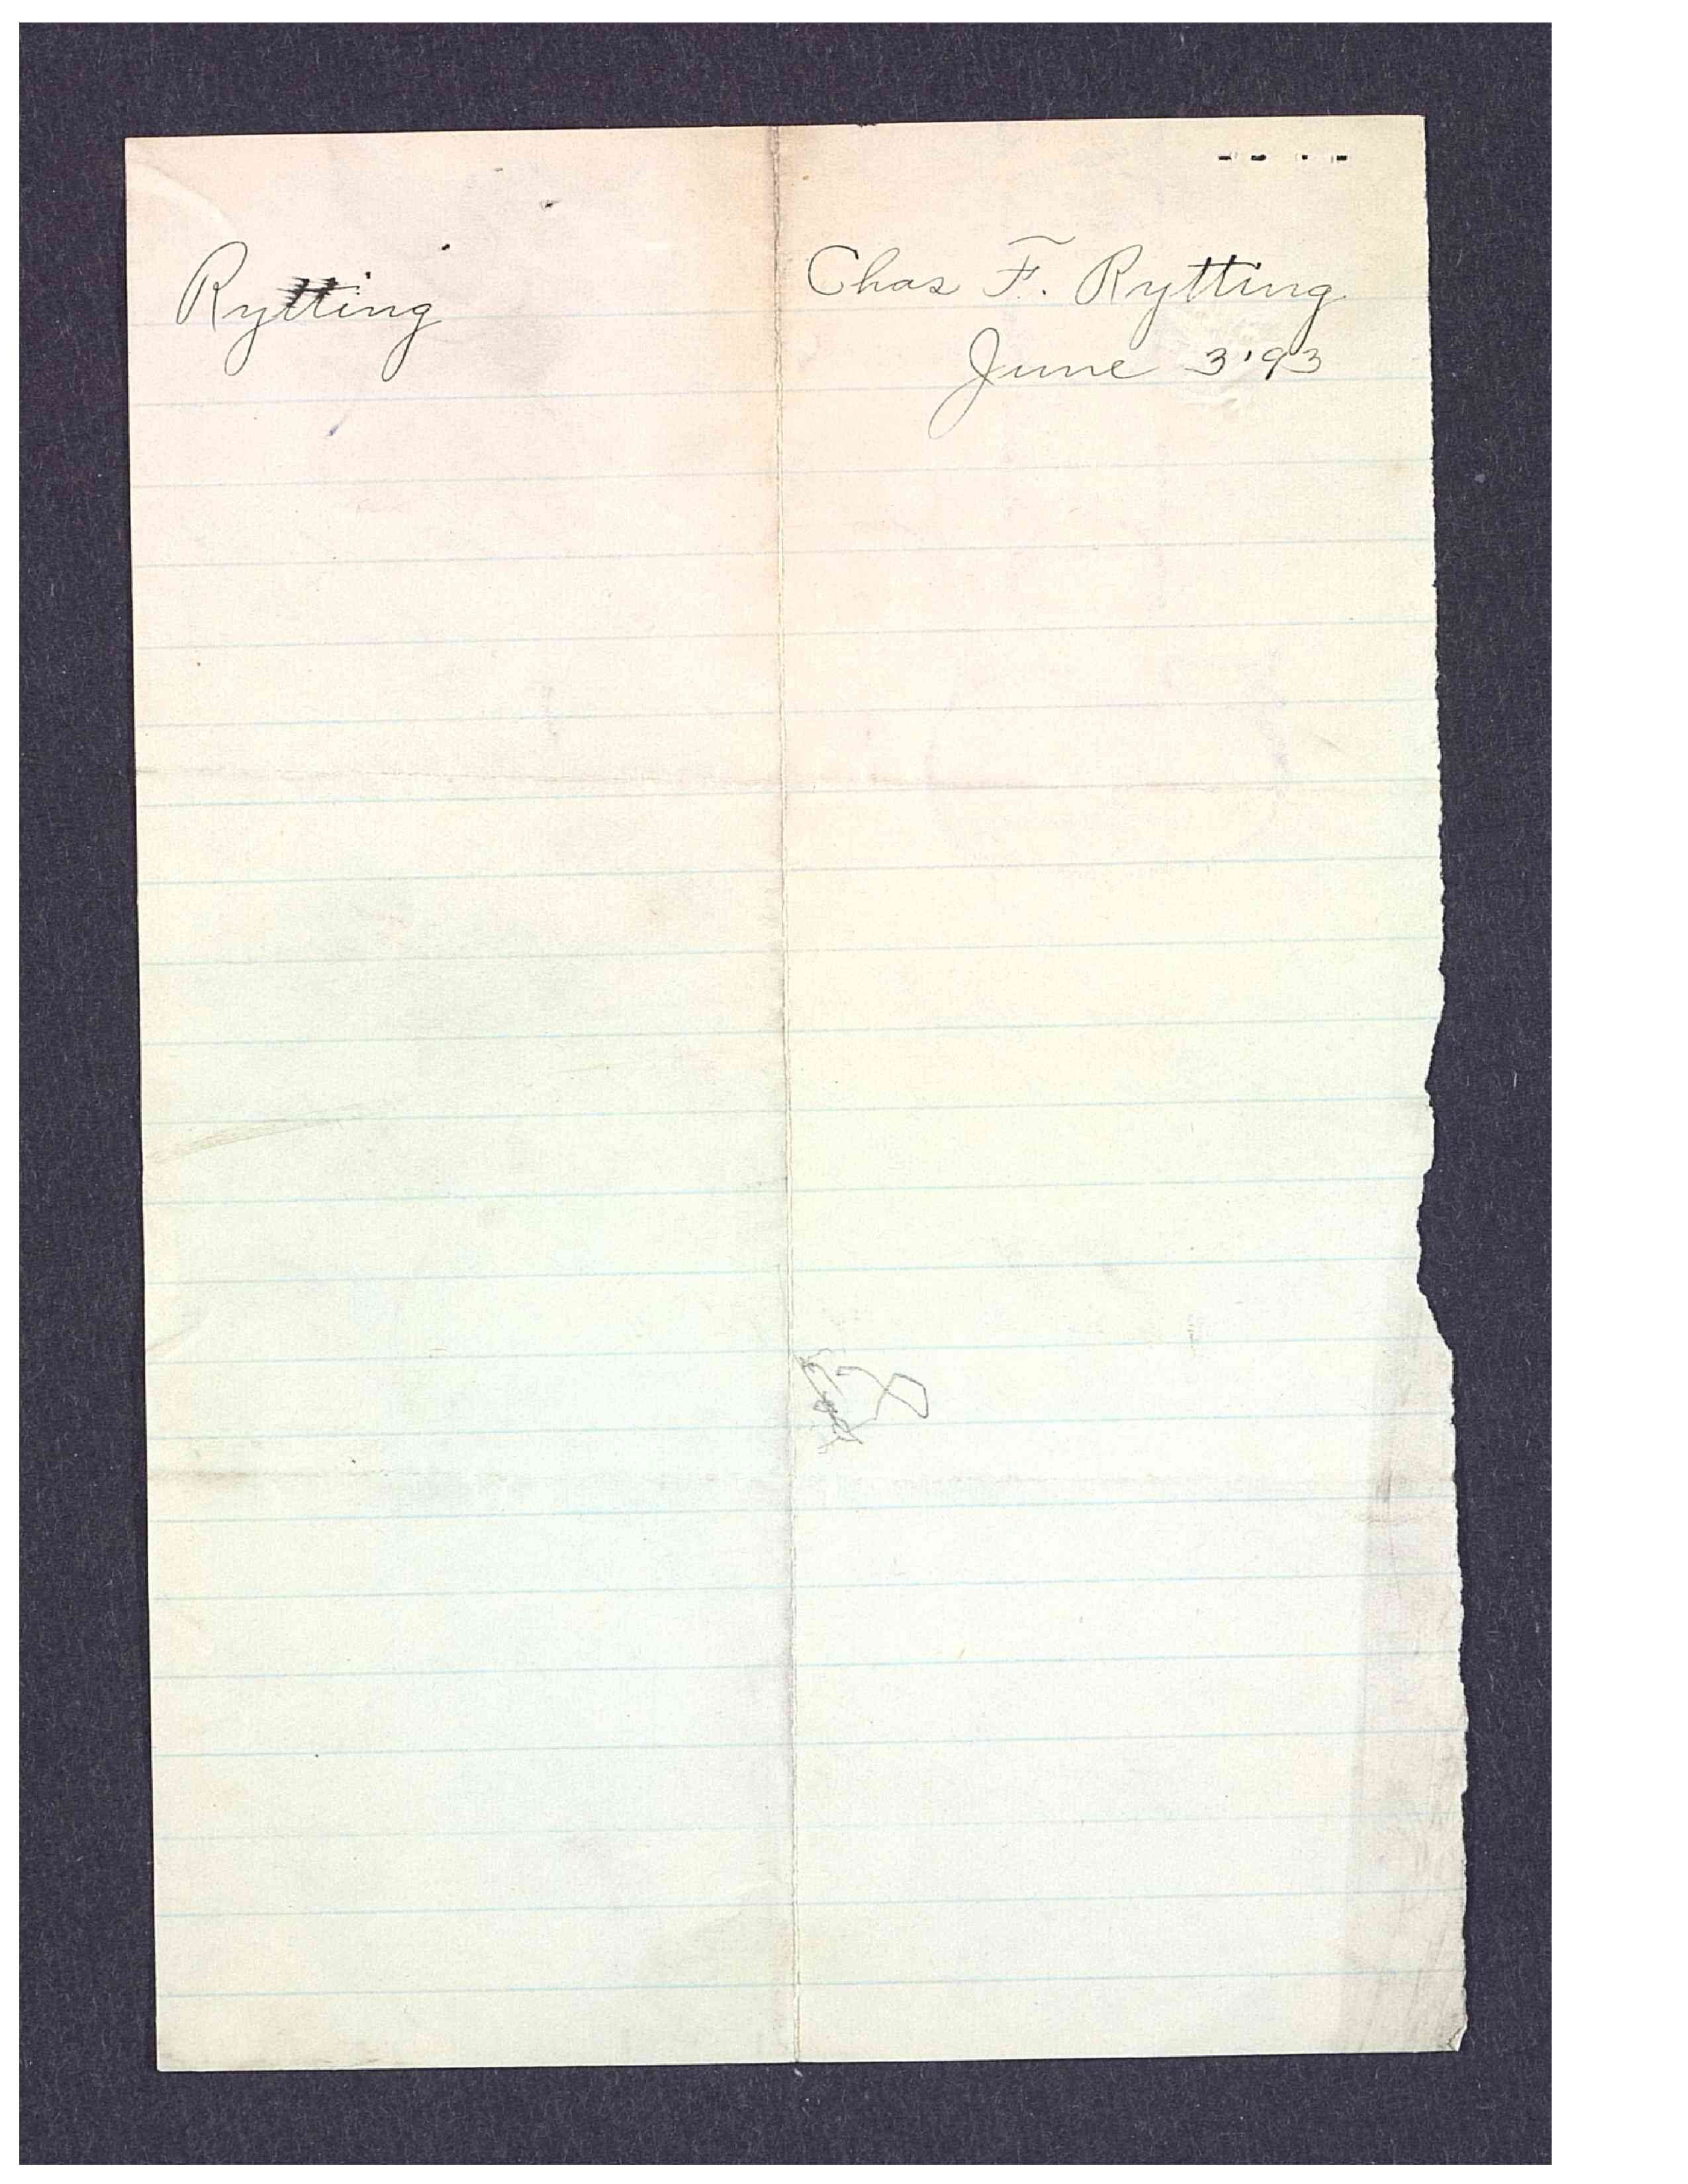 Rytting
Chas F. Rytting
June 3'93